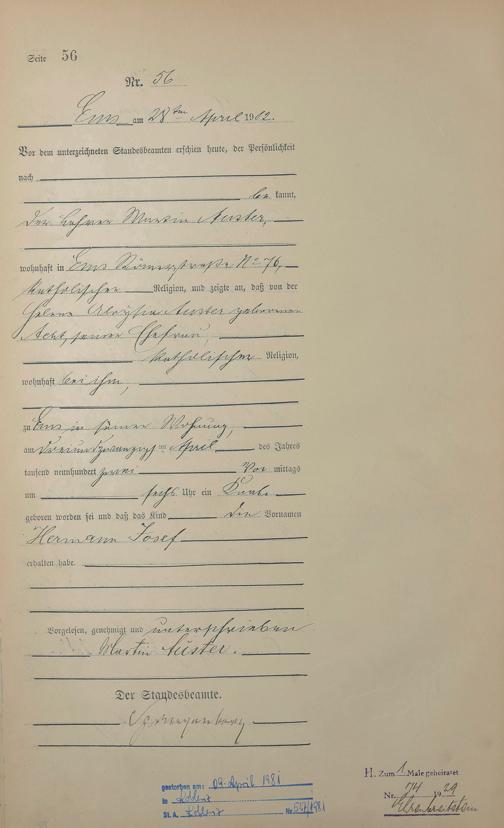 Seite 56
Nr. 56
Ems am 28ten April 1902.
Vor dem unterzeichneten Standesbeamten erschien heute, der Persönlichkeit
nach
be kannt,
der Lehrer Martin Auster,
wohnhaft in Ems Römerstraße No 76,
katholischer Religion, und zeigte an, daß von der
Helene Aloysia Auster geborenen
Acht, seiner Ehefrau,
katholischer Religion,
wohnhaft bei ihm,
zu Ems in seiner Wohnung,
am dreiundzwanzigsten April des Jahres
tausend neunhundert zwei Vor mittags
um sechs Uhr ein Knabe
geboren worden sei und daß das Kind die Vornamen
Hermann Josef
erhalten habe.
Vorgelesen, genehmigt und unterschrieben
Martin Auster.
Der Standesbeamte.
gestorben am: 09. April 1981
in Koblenz
St. A. Koblenz Nr. 527/1981
H. Zum 1 Male geheiratet
Nr. 74 1929
Ehrenbreitstein